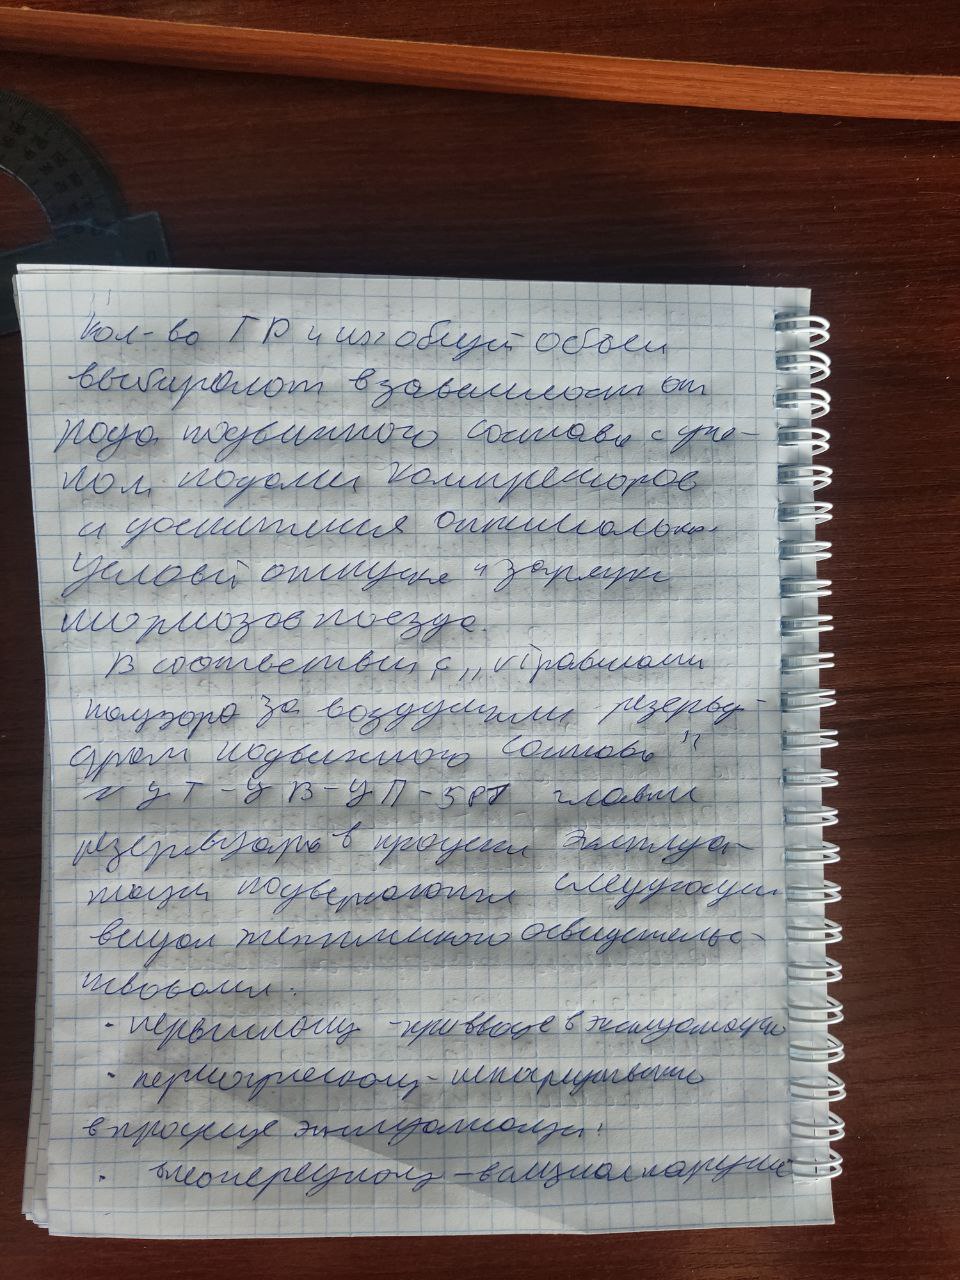 Кол-во ГР и их общий объем
выбирают в зависимости от
рода подвижного состава с уче-
том подачи компрессоров
и достижения оптимальных
условий отпуска и зарядки
тормозов поезда.
В соответствии с „Правилами
надзора за воздушными резерву-
арами подвижного состава"
ЦТ-ЦВ-ЦП-581 главные
резервуары в процессе эксплуа-
тации подвергаются следующим
видам технического освидетельс-
твования:
· первичному - при вводе в эксплуатацию
· периодическому -
в процессе эксплуатации;
· внеочередному - в случае